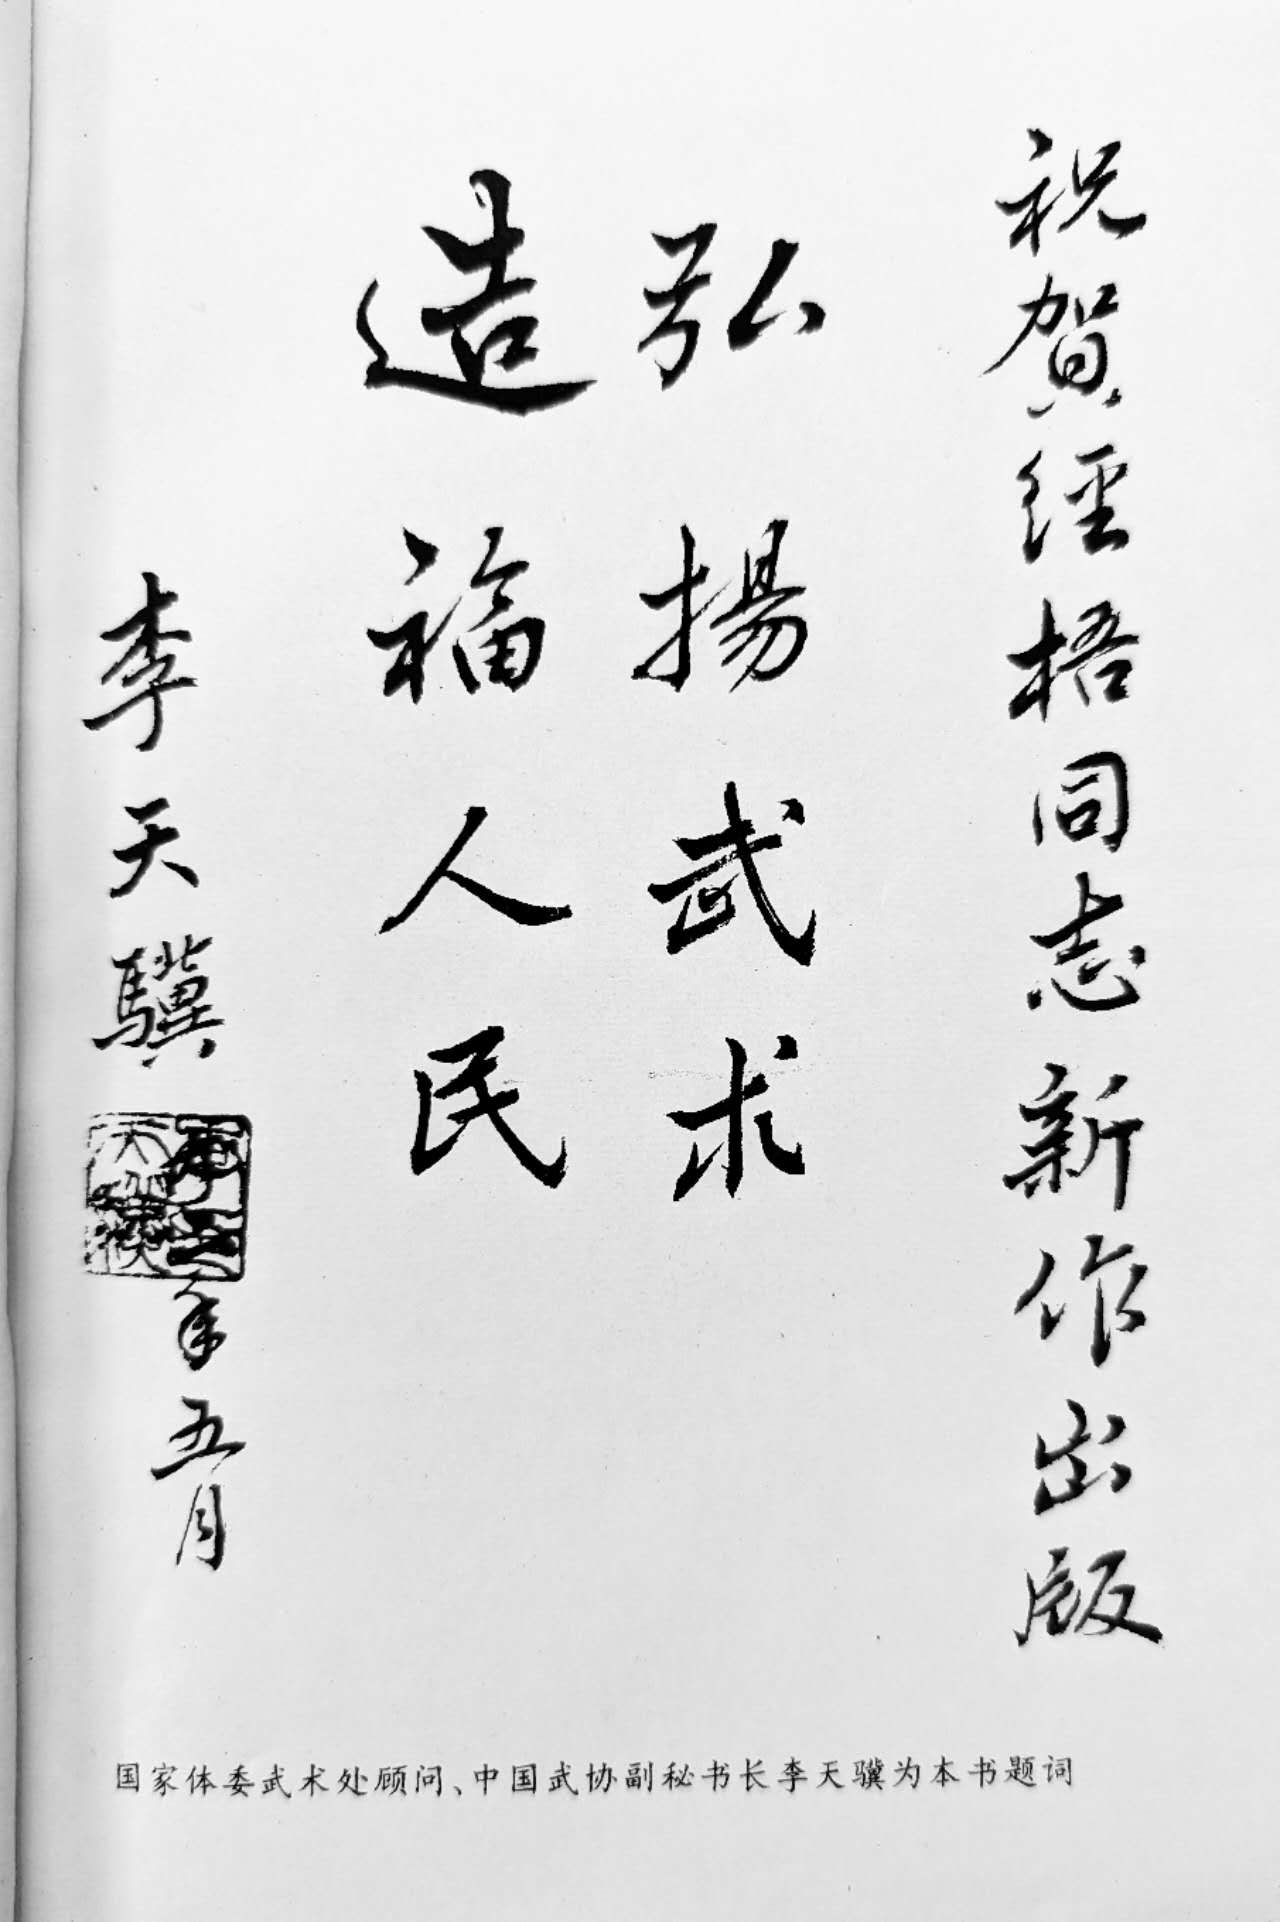 祝賀經梧同志新作出版
弘揚武术
造福人民
李天驥
年五月
国家体委武术处顾问、中国武协副秘书长李天骥为本书题词